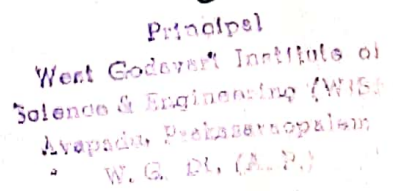 Principal
West Godavari Institute of
Science & Engineering (WISE
Avapadu, Prakasaraopalem
W. G. Dt, (A. P.)